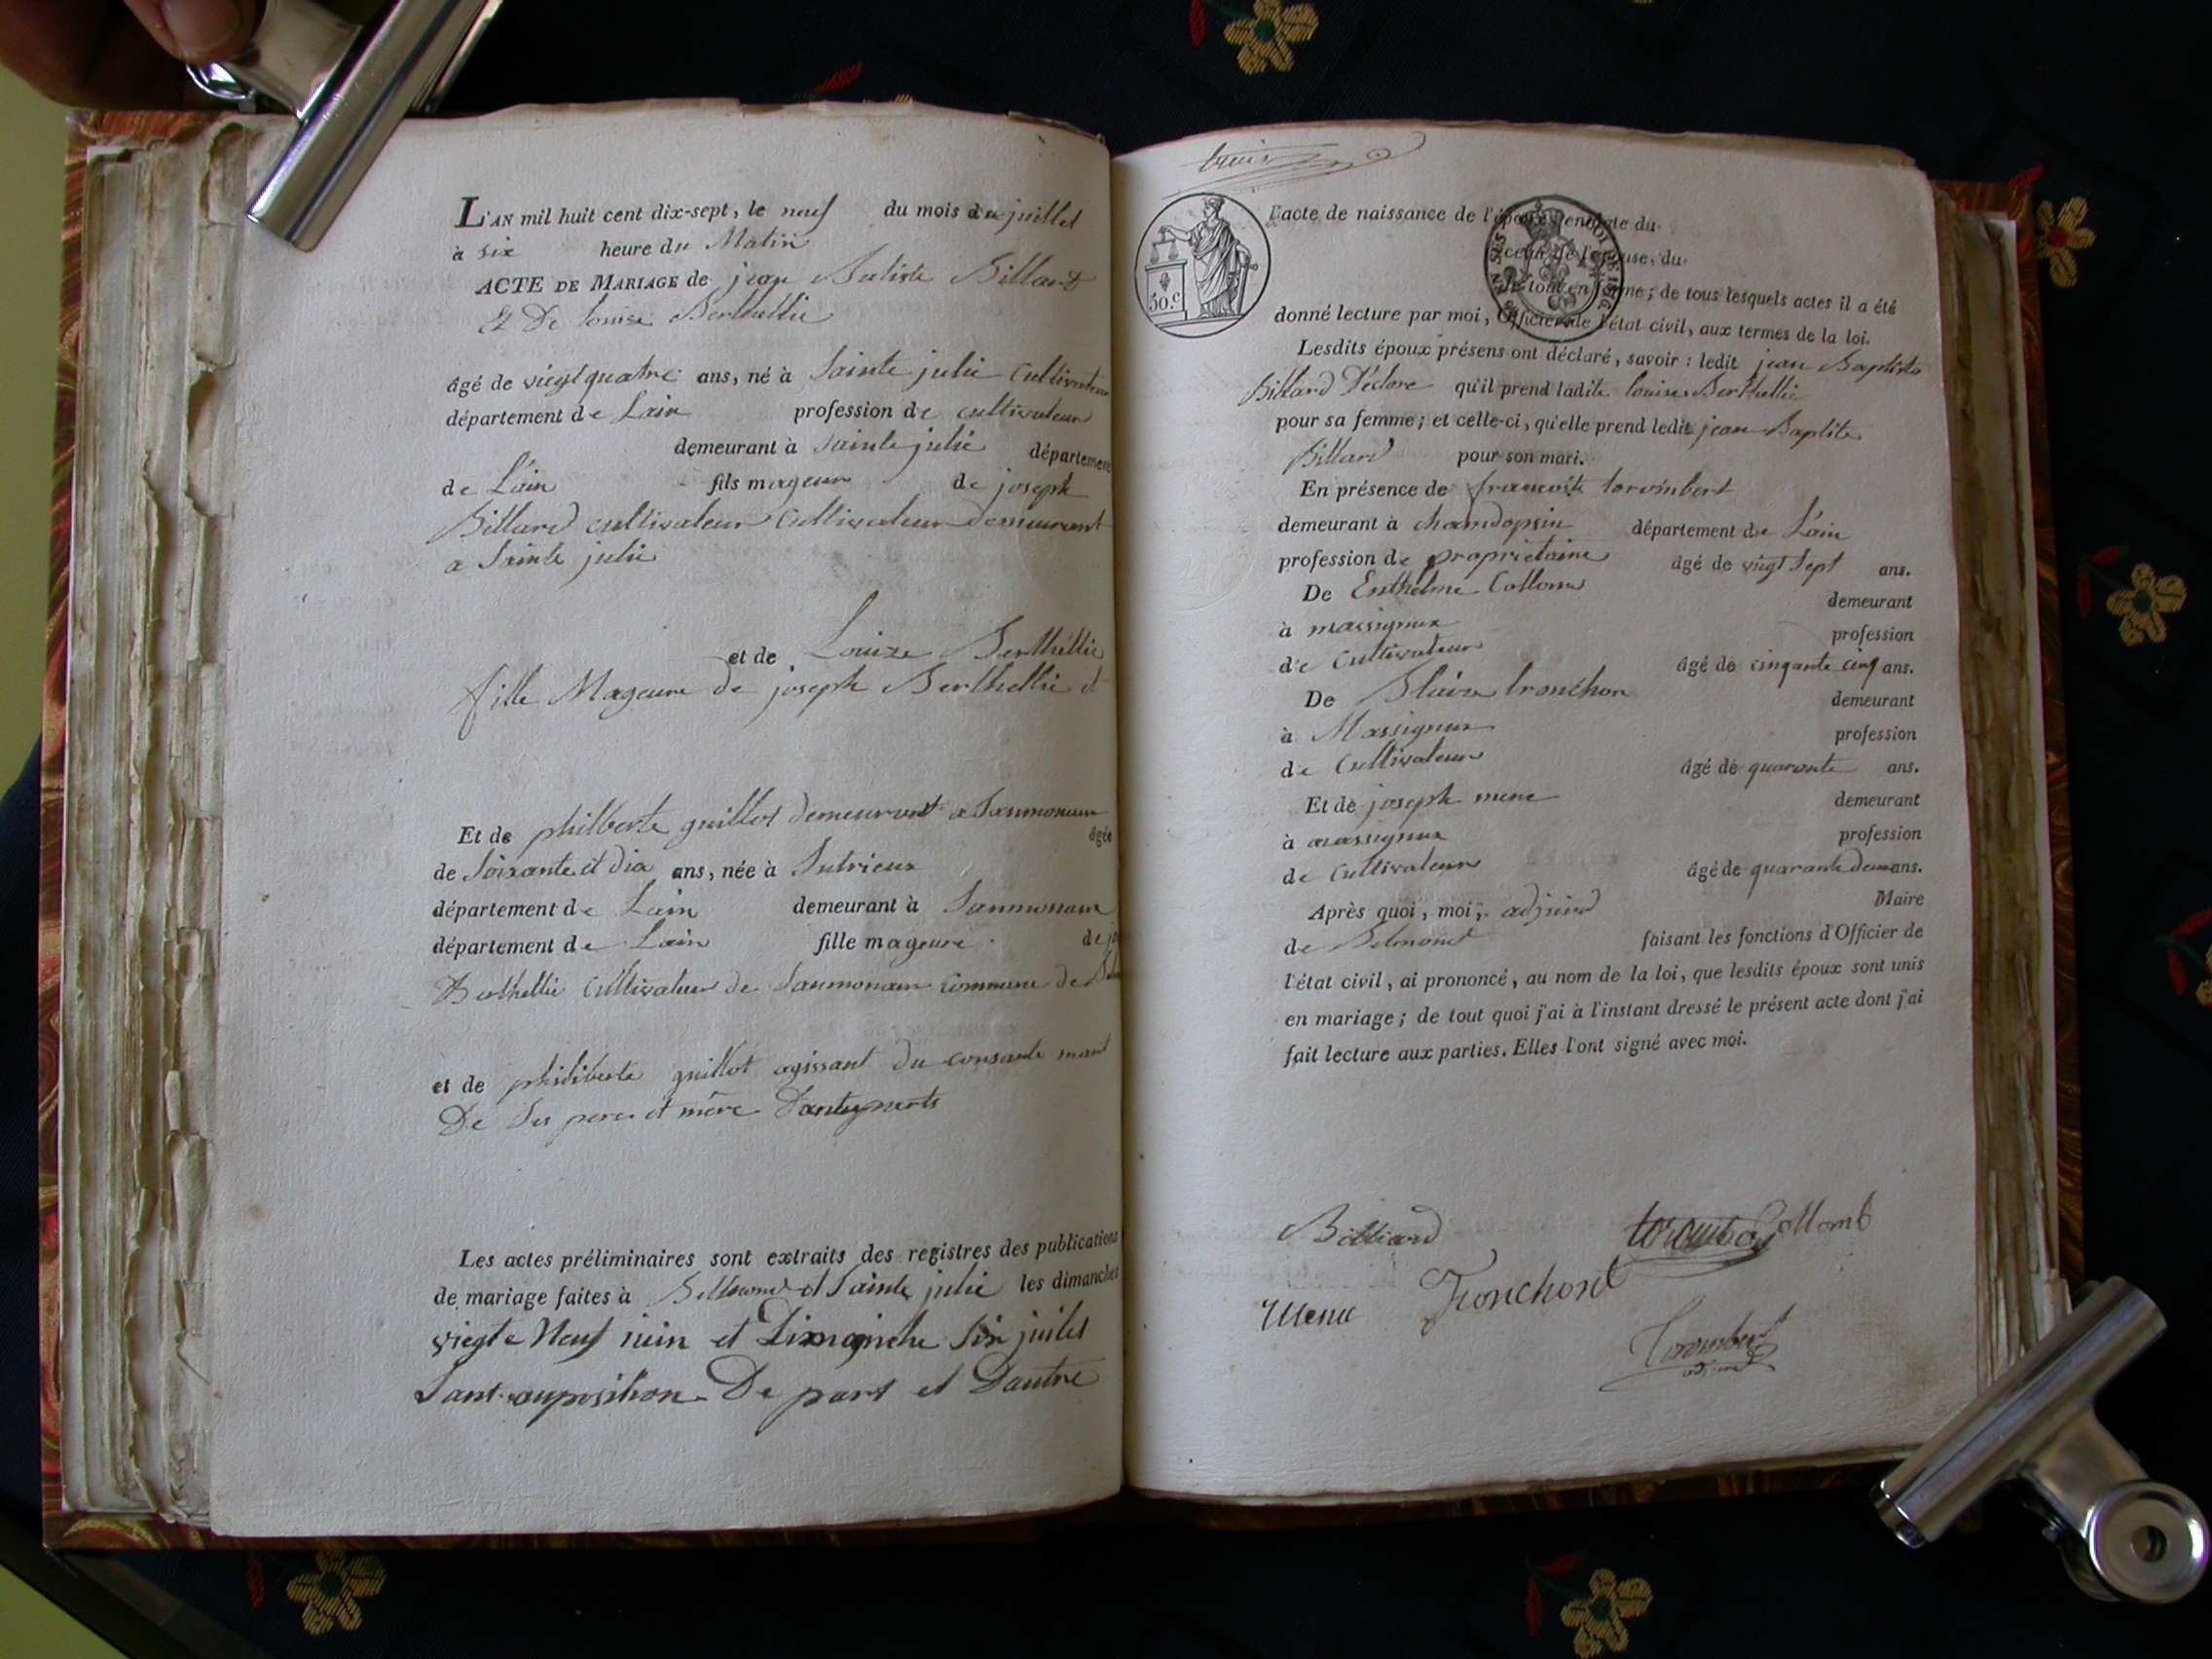 L'AN mil huit cent dix-sept, le neuf du mois de juillet
à six heure du Matin
ACTE DE MARIAGE de jean Batiste Billard
Et De louise Berthellie
âgé de viegt quatre ans, né à Sainte julie Cultivateur
département de Lain profession de cultivateur
demeurant à Sainte julie département
de L'ain fils mageur de joseph
Billard cultivateur Cultivateur demeurant
a Sainte julie
et de Louize Berthellie
fille Mageure de joseph Berthellie et
Et de philberte guillot demeurant a
âgée
de Soixante et dix ans, née à Sutrieux
département de Lain demeurant à
département de Lain fille mageure de
Berthellie Cultivateur de commune de
et de philiberte guillot agissant du consante mant
De Ses pere et mère
Les actes préliminaires sont extraits des registres des publications
de mariage faites à Bellmond et Sainte julie les dimanches
viegte Neuf iuin et Dimanche Six juilet
Sant auposition De part et Dautre
trois
50.c
l'acte de naissance de l'époux, en date du
celui de l'épouse, du
le tout en forme; de tous lesquels actes il a été
donné lecture par moi, Officier de l'état civil, aux termes de la loi.
Lesdits époux présens ont déclaré, savoir: ledit jean Baptiste
Billard Déclare qu'il prend ladite louise Berthellie
pour sa femme; et celle-ci, qu'elle prend ledit jean Baptite
Billard pour son mari.
En présence de torombert
demeurant à chamdossin département de L'ain
profession de proprietaire âgé de viegt Sept ans.
De Enthelme Collomb
demeurant
à massignux
profession
de Cultivateur âgé de cinqante cinq ans.
De Blaize tronchon
demeurant
à Massignux
profession
de Cultivateur âgé de quarante ans.
Et de joseph mene
demeurant
à massignux
profession
de Cultivateur âgé de quarante deux ans.
Après quoi, moi, adjoind Maire
de Belmond faisant les fonctions d'Officier de
l'état civil, ai prononcé, au nom de la loi, que lesdits époux sont unis
en mariage; de tout quoi j'ai à l'instant dressé le présent acte dont j'ai
fait lecture aux parties. Elles l'ont signé avec moi.
Billiard Collomb
Mena Tronchont
Torombert